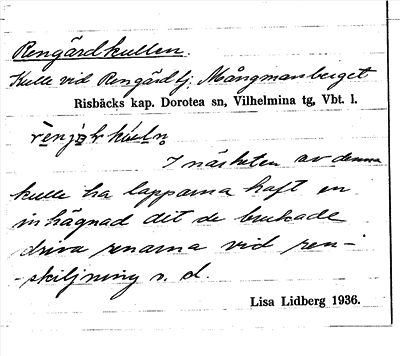 Rengärdkullen.
Kulle vid Rengärdtj; Mångmanberget
Risbäcks kap. Dorotea sn, Vilhelmina tg, Vbt. l.
I närheten av denna
kulle ha lapparna haft en
inhägnad dit de brukade
driva renarna vid ren-
-skiljning o. d.
Lisa Lidberg 1936.